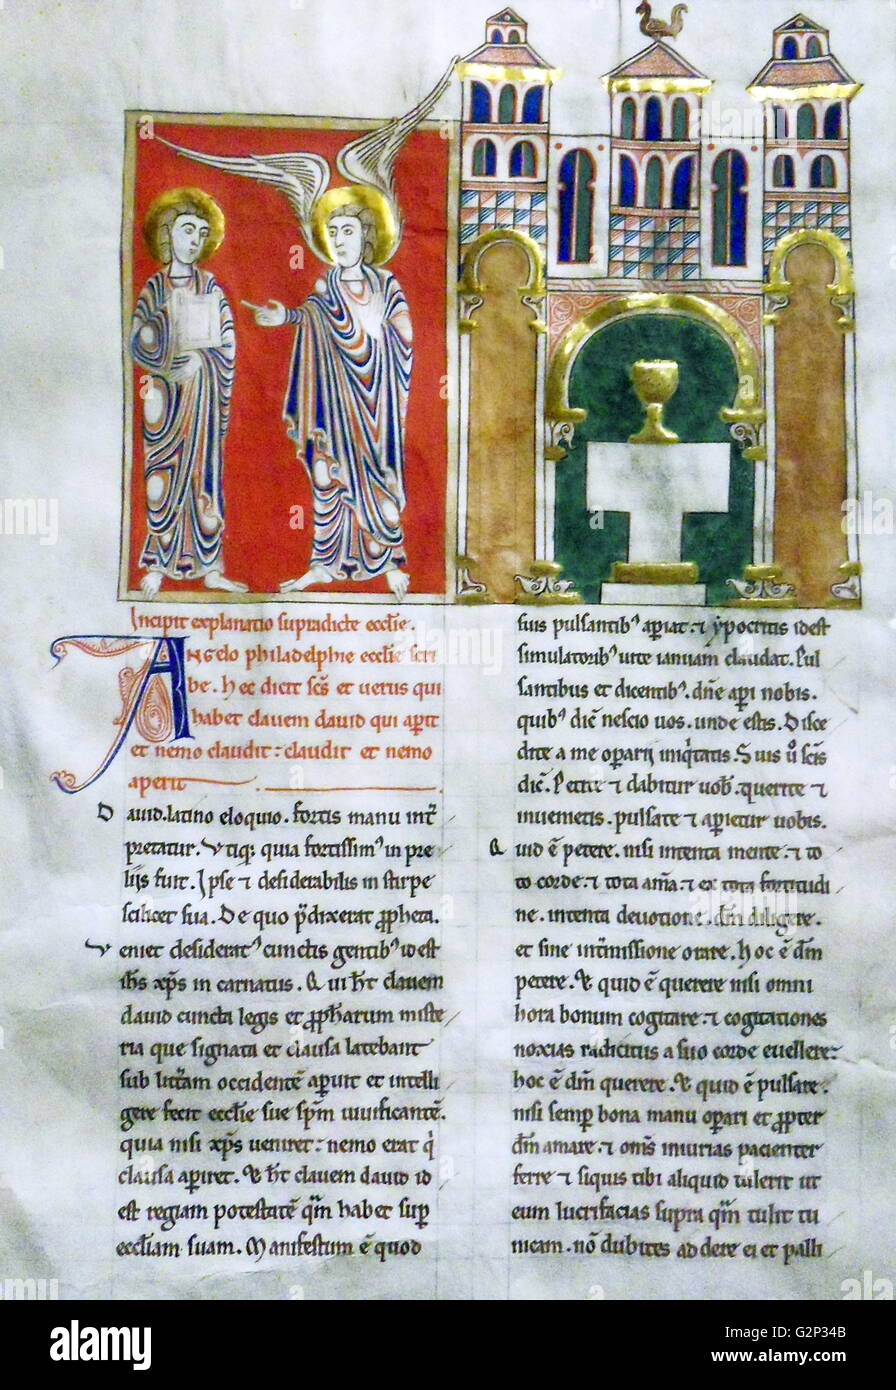 Incipit explanatio supradicte eccl̄ie.
ANgelo philadelphie eccl̄ie scri
be. Hec dicit sc̄s et verus qui
habet clavem david qui ap̄it
et nemo claudit: claudit et nemo
aperit
David. latino eloquio. fortis manu int̄
pretatur. Utiq; quia fortissim᾽ in pre
liis fuit. Ipse ⁊ desiderabilis in stirpe
scilicet sua. De quo p̄dixerat p̄pheta.
Veniet desiderat᾽ cunctis gentib᾽ id est
ih̄s xp̄s in carnatus. Qui h̄t clavem
david cuncta legis et p̄ph̄arum miste
ria que signata et clausa latebant
sub litt̄am occidentē ap̄uit et intelli
gere fecit eccl̄ie sue sp̄m vivificantē.
quia nisi xp̄s veniret: nemo erat q̄
clausa apiret. Et h̄t clavem david id
est regiam potestatē q̄m habet sup̄
eccl̄iam suam. Manifestum ē quod
suis pulsantib᾽ apiat. ⁊ ypocritis id est
simulatorib᾽ vite ianuam claudat. Pul
santibus et dicentib᾽. dn̄e api nobis.
quib᾽ dic̄ nescio vos. unde estis. Disce
dite a me oparii iniq̄tatis. Suis v̊ sc̄is
dic̄. Petite ⁊ dabitur vob̄. querite ⁊
invenietis. pulsate ⁊ apietur vobis.
Quid ē petere. nisi intenta mente. ⁊ to
to corde. ⁊ tota aīa. ⁊ ex tota fortitudi
ne. intenta devotione. dm̄ diligere.
et sine int̄missione orare. hoc ē dm̄
petere. Et quid ē querere nisi omni
hora bonum cogitare. ⁊ cogitationes
noxias radicitus a suo corde evellere:
hoc ē dm̄ querere. Et quid ē pulsare.
nisi semp bona manu opari et p̄pter
dm̄ amare. ⁊ om̄s iniurias pacienter
ferre ⁊ siquis tibi aliquid tulerit ut
eum lucrifacias supra q̄m tulit tu
nicam. nō dubites addere ei et palli
alamy
Image ID: G2P34B
www.alamy.com